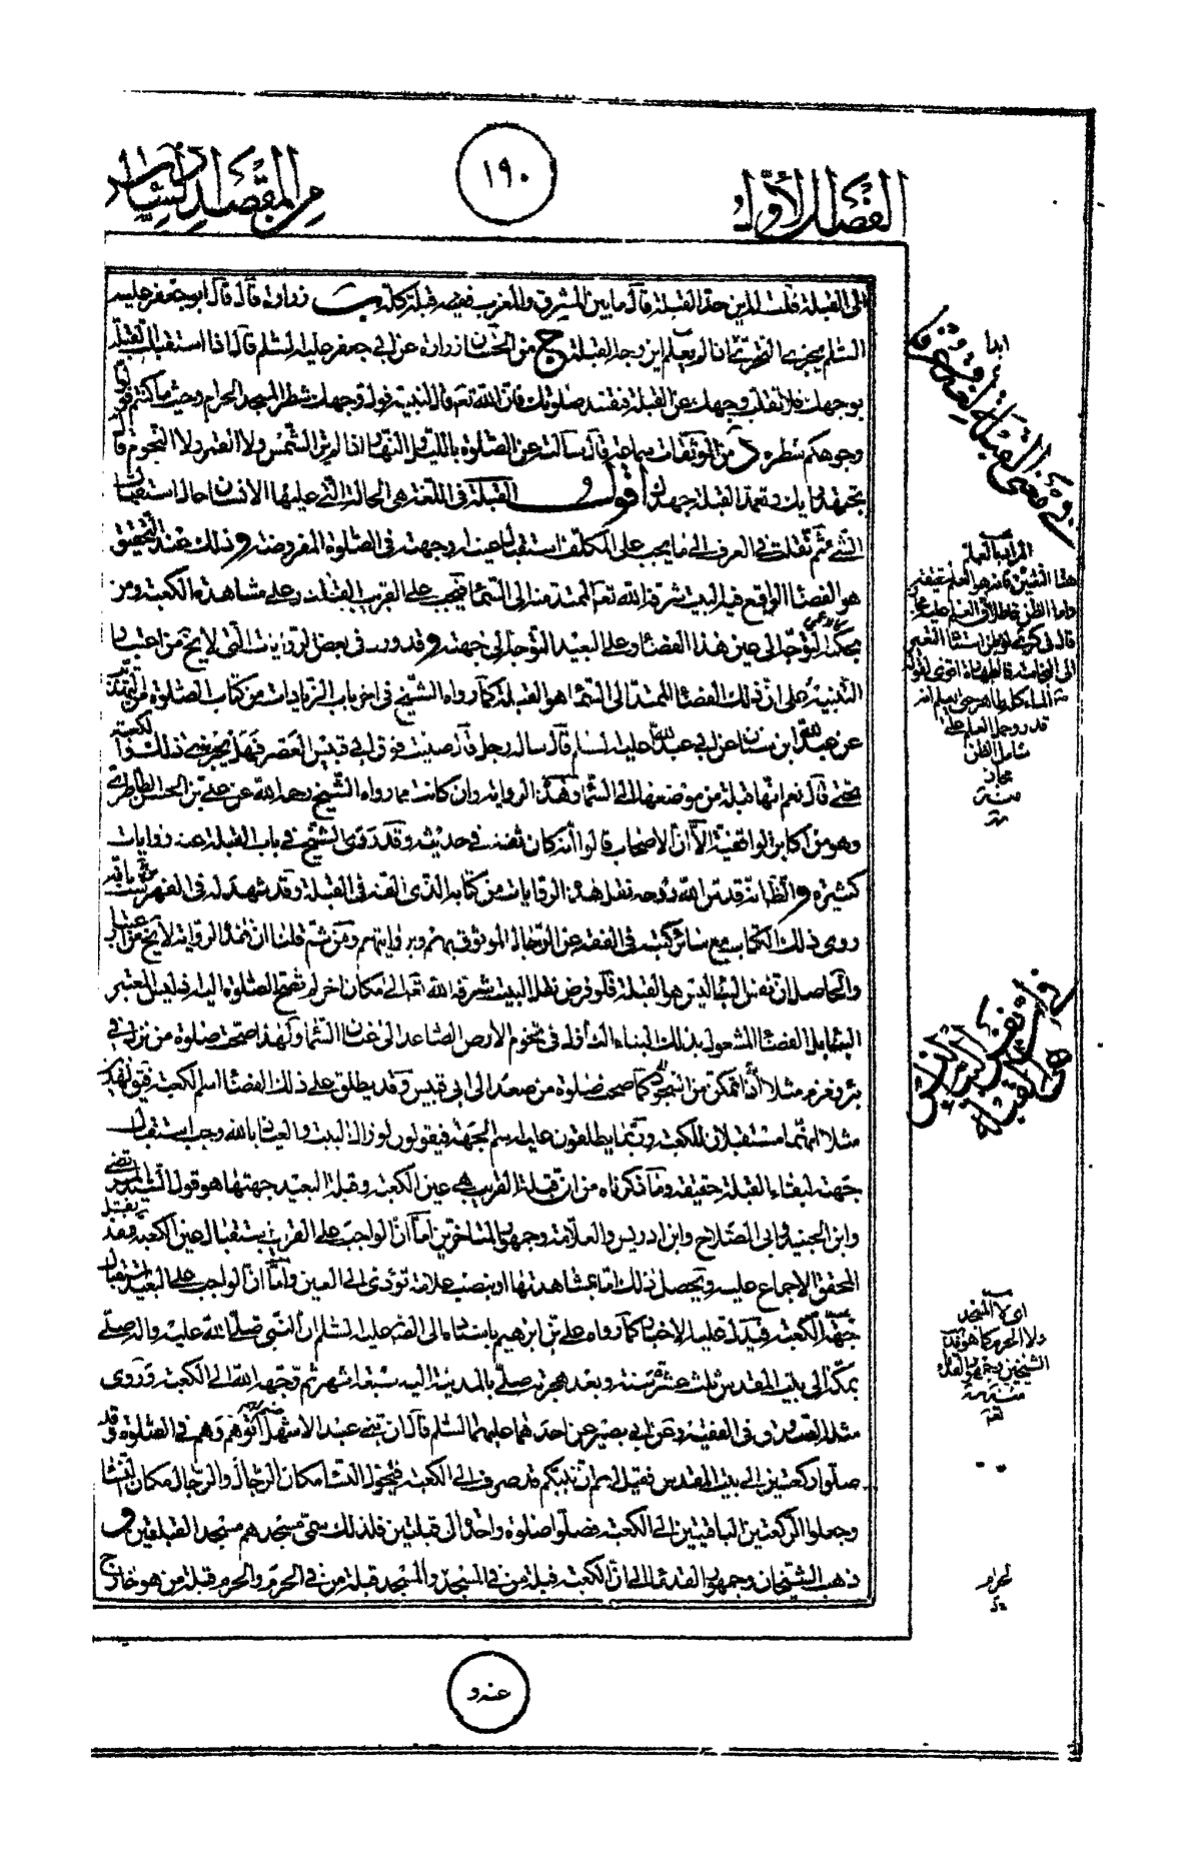 الفصل الأول
١٩٠
من المقصد السادس
الى القبلة قلت اين حد القبلة قال ما بين المشرق والمغرب قبلة كله ب زرارة قال قال ابو جعفر عليه
السلم يجزى التحرى ابدا اذا لم يعلم اين وجه القبلة ج من الحسان زرارة عن ابى جعفر عليه السلم قال اذا استقبلت القبلة
بوجهك فلا تقلب وجهك عن القبلة فتفسد صلوتك فان الله تعالى قال لنبيه فول وجهك شطر المسجد الحرام وحيث ما كنتم فولوا
وجوهكم شطره د من الموثقات سماعة قال سألته عن الصلوة بالليل والنهار اذا لم ير الشمس ولا القمر ولا النجوم قال
تجتهد رأيك وتعمد القبلة جهدك اقول القبلة فى اللغة هى الحالة التى عليها الانسان حال استقبال
الشئ ثم نقلت فى العرف الى ما يجب على المكلف استقبال عينه او جهته فى الصلوة المفروضة وذلك عند التحقيق
هو الفضاء الواقع فيه البيت شرفه الله تعالى الممتد منه الى السماء فيجب على القريب القبلة على مشاهدة الكعبة ومن
بحكمه التوجه الى عين هذا الفضاء وعلى البعيد التوجه الى جهته وقد ورد فى بعض الروايات التى لا يخ من اعتبار
التنبيه على ان ذلك الفضاء الممتد الى السماء هو القبلة كما رواه الشيخ فى اخر باب الزيادات من كتاب الصلوة من التهذيب
عن عبد الله ابن سنان عن ابى عبد الله عليه السلم قال سأله رجل قال صليت فوق ابى قبيس العصر فهل يجزى ذلك والكعبة
تحتى قال نعم انها قبلة من موضعها الى السماء وهذه الرواية وان كانت مما رواه الشيخ رحمه الله عن على بن الحسن الطاطرى
وهو من اكابر الواقفية الا ان الاصحاب قالوا انه كان ثقة فى حديثه وقد روى الشيخ فى باب القبلة عنه روايات
كثيرة والظ انه قدس الله روحه نقل هذه الروايات من كتابه الذى الفه فى القبلة وقد شهد له فى الفهرست بانه
روى ذلك الكتاب مع سائر كتبه فى الفقه عن الرجال الموثوق بهم وبرواياتهم ومن ثم قلنا ان هذه الرواية لا يخ من اعتبار
والحاصل ان نفس البناء ليس هو القبلة فلو فرض نقل البيت شرفه الله تعالى الى مكان اخر لم تصح الصلوة اليه فليس المعتبر
البناء بل الفضاء المشغول بذلك البناء النازل فى تخوم الارض الصاعد الى عنان السماء ولهذا صحت صلوة من نزل فى
بئر زمزم مثلا اذا تمكن من السجود كما صحت صلوة من صعد الى ابى قبيس وقد يطلق على ذلك الفضاء اسم الكعبة
مثلا انهما مستقبلان للكعبة وربما يطلقون عليه اسم الجهة فيقولون لو زال البيت والعياذ بالله وجب استقبال
جهته لبقاء القبلة حقيقة وما ذكرناه من ان قبلة القريب هى عين الكعبة وقبلة البعيد جهتها هو قول السيد المرتضى
وابن الجنيد وابى الصلاح وابن ادريس والعلامة وجمهور المتاخرين اما ان الواجب على القريب استقبال عين الكعبة فقد نقل
المحقق الاجماع عليه ويحصل ذلك اما بمشاهدتها او بنصب علامة تؤدى الى العين واما ان الواجب على البعيد استقبال
جهة الكعبة فيدل عليه الاخبار كما رواه على بن ابرهيم باسناده الى الصادق عليه السلم ان النبى صلى الله عليه واله صلى
بمكة الى بيت المقدس ثلث عشرة سنة وبعد هجرته صلى بالمدينة اليه سبعة اشهر ثم وجهه الله الى الكعبة وروى
مثله الصدوق فى الفقيه وعن ابى بصير عن احدهما عليهما السلم قال ان بنى عبد الاشهل اتوهم وهم فى الصلوة وقد
صلوا ركعتين الى بيت المقدس فقيل لهم ان نبيكم قد صرف الى الكعبة فتحول النساء مكان الرجال والرجال مكان النساء
وجعلوا الركعتين الباقيتين الى الكعبة فصلوا صلوة واحدة الى قبلتين فلذلك سمى مسجدهم مسجد القبلتين و
ذهب الشيخان وجمهور القدماء الى ان الكعبة قبلة من فى المسجد والمسجد قبلة من فى الحرم والحرم قبلة من هو خارج
ابدا
المراد بالعلم
اى لا المسجد
ولا الحرم كما هو قول
الشيخين وجمهور القدماء
منه
عنه و